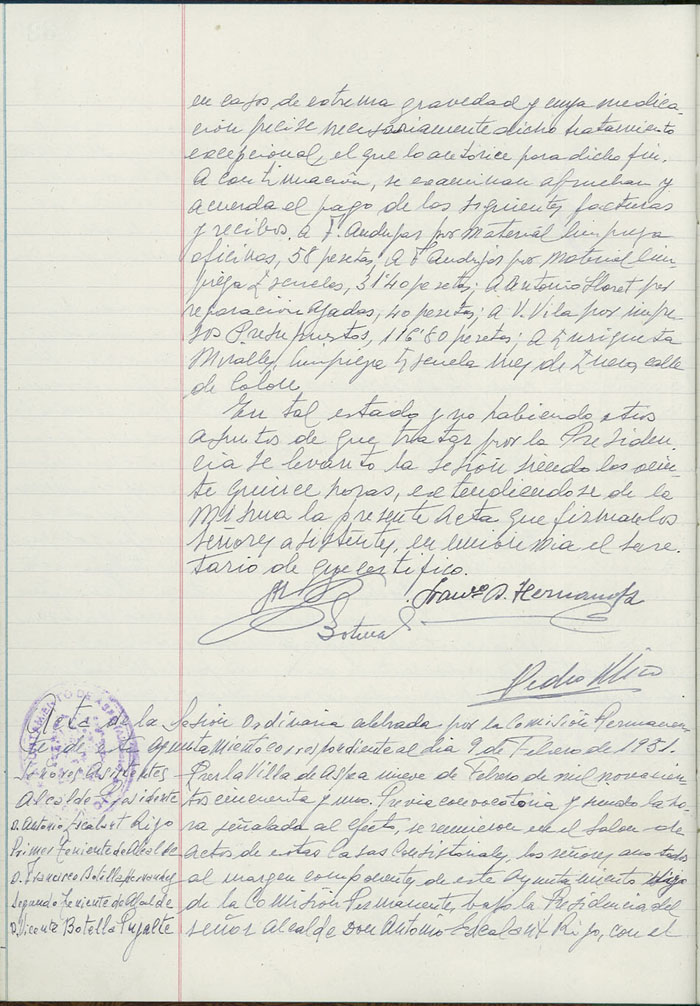 en casos de extrema gravedad y cuya medica-
ción precise necesariamente dicho tratamiento
excepcional, el que lo autorice para dicho fin.
A continuación, se examinan aprueban y
acuerda el pago de las siguientes facturas
y recibos. a F. Andujar por Material limpieza
oficinas, 58 pesetas, A F. Andujar por Material lim-
pieza Escuelas, 31'40 pesetas; a Antonio Lloret por
reparación azadas, 40 pesetas; a V. Vila por impre-
sos Presupuestos, 116'80 pesetas; a Enriqueta
Miralles, limpieza Escuela mes de Enero, calle
de Colon.
En tal estado y no habiendo otros
asuntos de que tratar por la Presiden-
cia se levanto la sesión siendo las vein-
te quince horas, extendiendose de la
misma la presente Acta que firman los
señores asistentes, en union mia el Secre-
tario de que certifico.
Franco B. Hernandez
Botella
Pedro Miro
Acta de la Sesión Ordinaria celebrada por la Comisión Permanen-
te de este Ayuntamiento correspondiente al dia 9 de Febrero de 1951.
Señores Asistentes
Alcalde Presidente
D. Antonio Escalant Rigo
Primer Teniente de Alcalde
D. Francisco Botella Hernandez
Segundo Teniente de Alcalde
D. Vicente Botella Pujalte
En la Villa de Aspe a nueve de Febrero de mil novecien-
tos cincuenta y uno. Previa convocatoria y siendo la ho-
ra señalada al efecto, se reunieron en el Salon de
actos de estas Casas Consistoriales, los señores anotados
al margen componentes de este Ayuntamiento
de la Comisión Permanente, bajo la Presidencia del
señor Alcalde Don Antonio Escalant Rigo, con el